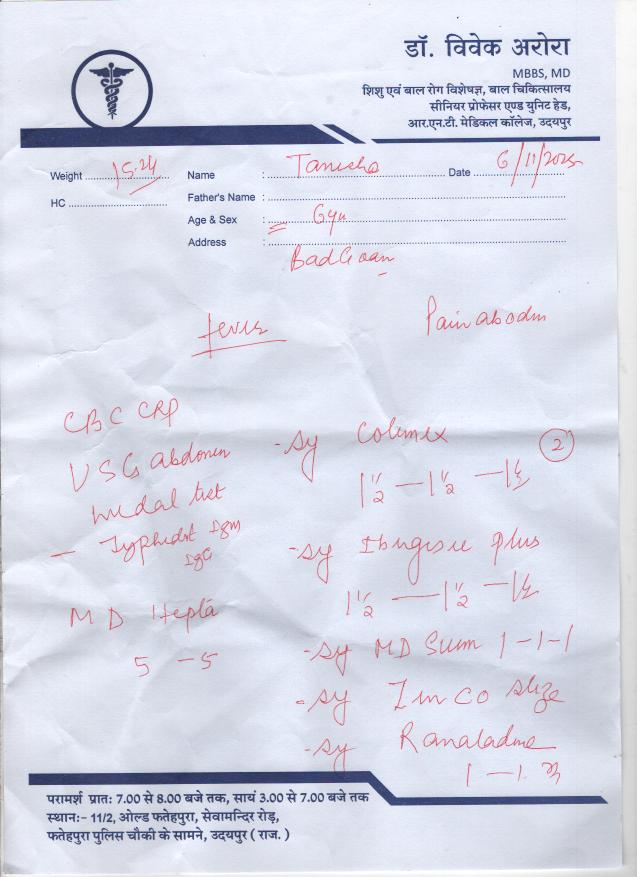 डॉ. विवेक अरोरा
MBBS, MD
शिशु एवं बाल रोग विशेषज्ञ, बाल चिकित्सालय
सीनियर प्रोफेसर एण्ड युनिट हेड,
आर.एन.टी. मेडिकल कॉलेज, उदयपुर
Weight 15.24 Name : Tanisha Date 6/11/2025
HC Father's Name :
Age & Sex : 6yu
Address : BadGoan
fever Pain abodm
CBC CRP
USG abdomen
widal test
- Typhidot IgM
IgG
MD Hepta
5 - 5
- sy Colimex 2
1 1/2 — 1 1/2 — 1 1/2
- sy Ibugesic plus
1 1/2 — 1 1/2 — 1 1/2
- sy MD Sum 1-1-1
- sy Zinco
- sy
1 - 1
परामर्श प्रातः 7.00 से 8.00 बजे तक, सायं 3.00 से 7.00 बजे तक
स्थान:- 11/2, ओल्ड फतेहपुरा, सेवामन्दिर रोड़,
फतेहपुरा पुलिस चौकी के सामने, उदयपुर ( राज. )